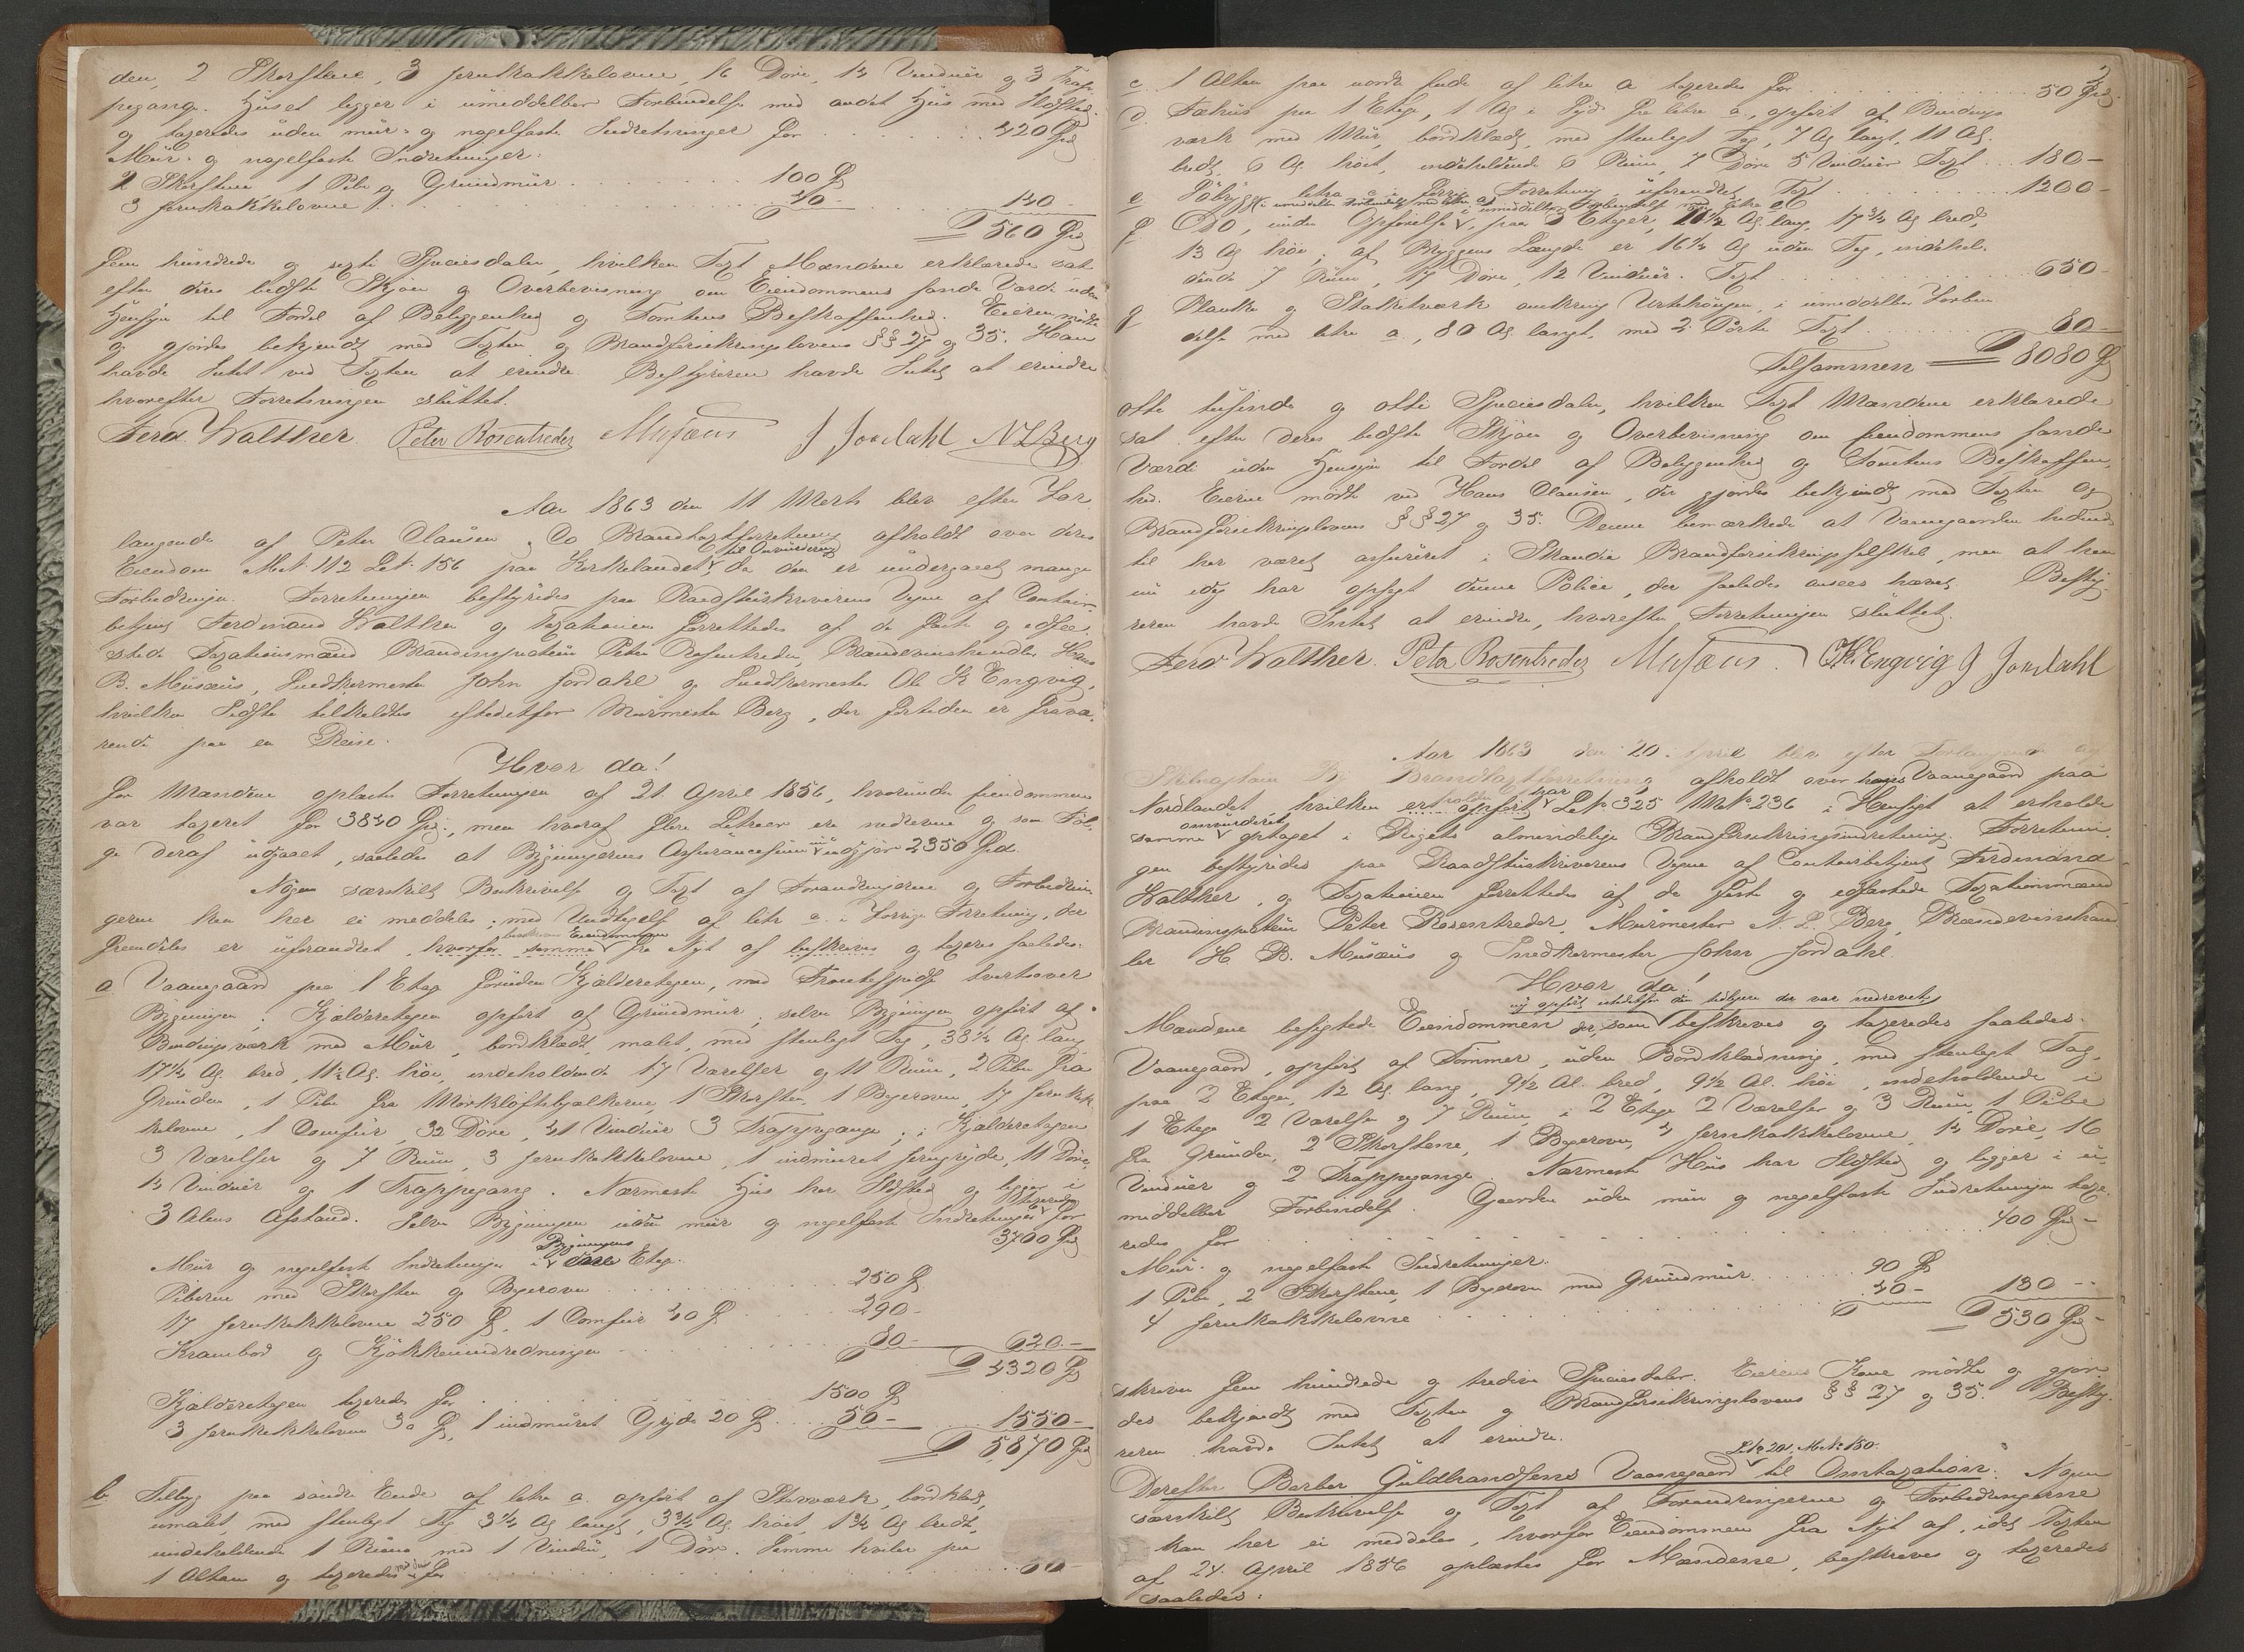 den, 2 Skorstene, 3 Jernkakkelovne, 16 Döre, 14 Vinduer og 3 Trap-
pegange. Huset ligger i umiddelbar Forbindelse med andet Huus med Ildsted
og taxeredes uden muur- og nagelfaste Indretninger for 420 Spd
Muur- og nagelfaste Indretninger:
2 Skorstene, 1 Pibe og Grundmuur 100 Spd
3 Jernkakkelovne 40 - 140 -
560 Spd
Fem hundrede og sexti Speciesdaler, hvilken Taxt Mændene erklærede sat
efter deres bedste Skjön og Overbeviisning om Eiendommens sande Værdi uden
Hensyn til Fordel af Beliggenhed og Tomtens Beskaffenhed. Eieren mödte
og gjordes bekjendt med Taxten og Brandforsikringslovens §§ 27 og 35. Han
havde Intet ved Taxten at erindre. Bestyreren havde Intet at erindre
hvorefter Forretningen sluttet.
Ferd. Walther. Peter Rosentreder Musæus J Jordahl N L Berg
Aar 1863 den 11 Marts blev efter For-
langende af Peter Clausen & Co Brandtaxtforretning afholdt over deres
Eiendom Mat. 112 Let. 156 paa Kirkelandet til Omvurdering, da den er undergaaet mange
Forbedringer. Forretningen bestyredes paa Raadstuskriverens Vegne af Contoir-
betjent Ferdinand Walther og Taxationen forrettedes af de faste og edfæ-
stede Taxationsmænd Brandinspecteur Peter Rosentreder, Brændeviinshandler Hans
B. Musæus, Snedkermester John Jordahl og Snedkermester Ole K Engvig,
hvilken Sidste tilkaldtes istedetfor Muurmester Berg, der fortiden er fravæ-
rende paa en Reise.
Hvor da!
for Mændene oplæstes Forretningen af 21. April 1856, hvorunder Eiendommen
var taxeret for 3840 Spd., men hvoraf flere Litraer ere nedrevne og som Föl-
ge deraf udgaaet, saaledes at Bygningernes Assurancesum nu udgjör 2350 Spd.
Nogen særskilt Beskrivelse og Taxt af Forandringerne og Forbedrin-
gerne kan her ei meddeles, med Undtagelse af litr a. i Forrige Forretning, der
fremdeles er uforandret, hvorfor samme Eiendommen fra Nyt af beskrives og taxeres saaledes:
a Vaanegaard paa 1 Etage foruden Kjælderetagen, med Frontespidse tvertover
Bygningen; Kjælderetagen opfört af Grundmuur; selve Bygningen opfört af
Bindingsværk med Muur, bordklædt, malet, med steenlagt Tag, 38 1/2 Al lang
17 1/2 Al. bred, 11 1/2 Al. höi, indeholdende 17 Værelser og 11 Rum, 2 Piber fra
Grunden, 1 Pibe fra Mörkloftsbjælkerne, 1 Skorsten, 1 Bagerovn, 17 Jernkak-
kelovne, 1 Comfuir, 32 Döre, 41 Vinduer 3 Trappegange; i Kjælderetagen
3 Værelser og 7 Rum, 3 Jernkakkelovne, 1 indmuret Jerngryde, 11 Döre,
14 Vinduer og 1 Trappegang. Nærmeste Huus har Ildsted og ligger i
3 Alens Afstand. Selve Bygningen uden muur og nagelfaste Indretninger taxeredes for
3700 Spd
Muur og nagelfaste Indretninger i Bygningens Etage.
Piberne med Skorsten og Bagerovn 250 Spd
17 Jernkakkelovne 250 Spd, 1 Comfuir 40 Spd 290 -
Krambod og Kjökkenindredninger 80 - 620 -
4320 Spd
Kjælderetagen taxeredes for 1500 Spd
3 Jernkakkelovne 30 Spd, 1 indmuret Gryde 20 Spd 50 - 1550 -
5870 Spd
b Tilbyg paa söndre Ende af litra a. opfört af Stavværk, bordklædt,
umalet, med steenlagt Tag 3 3/4 Al langt, 3 3/4 Al höit, 1 3/4 Al bredt,
indeholdende 1 Rum med 1 Vindu, 1 Dör. Samme hviler paa
1 Altan og taxeredes for 60 -
2
c. 1 Altan paa nordre Ende af litra a taxeredes for 50 Spd.
d Fæhuus paa 1 Etage, 1 Al i Syd fra litra a, opfört af Bindings-
værk med Muur, bordklædt, med steenlagt Tag, 7 Al langt, 11 Al.
bredt, 6 Al höit, indeholdende 6 Rum, 7 Döre 5 Vinduer Taxt 180 -
e Söbrygge litra c i forrige Forretning, uforandret Taxt 1200 -
i umiddelbar Forbindelse med litra d
f Do, under Opförelse i umiddelbar Forbindelse med litra e, paa 3 Etager, 21 1/2 Al. lang, 17 3/4 Al bred,
13 Al höi; af Bryggens Længde er 16 1/4 Al uden Tag, indehol-
dende 7 Rum, 17 Döre, 12 Vinduer. Taxt 650 -
g Planke og Stakitværk omkring Urtehaugen, i umiddelbar Forbin-
delse med litra a, 80 Al langt, med 2 Porte Taxt 80 -
Tilsammen 8080 Spd
otte tusinde og otti Speciesdaler, hvilken Taxt Mændene erklærede
sat efter deres bedste Skjön og Overbeviisning om Eiendommens sande
Værdi uden Hensyn til Fordel af Beliggenhed og Tomtens Beskaffen-
hed. Eierne mödte ved Hans Clausen, der gjordes bekjendt med Taxten og
Brandforsikringslovens §§ 27 og 35. Denne bemærkede at Vaanegaarden hidind-
til har været assureret i Skandia Brandforsikringsselskab, men at han
nu idag har opsagt denne Police, der saaledes ansees hævet. Besty-
reren havde Intet at erindre, hvorefter Forretningen sluttet.
Ferd Walther. Peter Rosentreder Musæus. O. K. Engvig J Jordahl
Aar 1863 den 20. April blev efter Forlangende af
Brandtaxtforretning afholdt over hans Vaanegaard paa
Nordlandet, hvilken er opfört Let No 325 Mt No 236 i Hensigt at erholde
samme omvurderet optaget i Rigets almindelige Brandforsikringsindretning. Forretnin-
gen bestyredes paa Raadstuskriverens Vegne af Contoirbetjent Ferdinand
Walther, og Taxationen forrettedes af de faste og edfæstede Taxationsmænd
Brandinspecteur Peter Rosentreder, Muurmester N. L. Berg, Brændeviinshand-
ler H. B. Musæus og Snedkermester John Jordahl.
Hvor da!
Mændene besigtede Eiendommen der, som ny opfört istedetfor den tidligere der var nedrevet, beskrives og taxeredes saaledes:
Vaanegaard, opfört af Tömmer, uden Bordklædning, med steenlagt Tag,
paa 2 Etager, 12 Al. lang, 9 1/2 Al. bred, 9 1/2 Al. höi, indeholdende i
1 Etage 2 Værelser og 7 Rum, i 2 Etage 2 Værelser og 3 Rum, 1 Pibe
fra Grunden, 2 Skorstene, 1 Bagerovn, 4 Jernkakkelovne, 14 Döre, 16
Vinduer og 2 Trappegange. Nærmeste Huus har Ildsted og ligger i u-
middelbar Forbindelse. Gaarden uden muur og nagelfaste Indretninger taxe-
redes for 400 Spd -
Muur- og nagelfaste Indretninger.
1 Pibe, 2 Skorstene, 1 Bagerovn med Grundmuur 90 Spd
4 Jernkakkelovne 40 - 130 -
530 Spd -
skriver fem hundrede og tredive Speciesdaler. Eierens Kone mödte og gjor-
des bekjendt med Taxten og Brandforsikringslovens §§ 27 og 35. Besty-
reren havde Intet at erindre.
Derefter Barber Guldbrandsens Vaanegaard Let No 201. Mt No 180. til Omtaxation. Nogen
særskilt Beskrivelse og Taxt af Forandringerne og Forbedringerne
kan her ei meddeles, hvorfor Eiendommen fra Nyt af, idet Taxten
af 24 April 1856 oplæstes for Mændene, beskrives og taxeredes
saaledes: